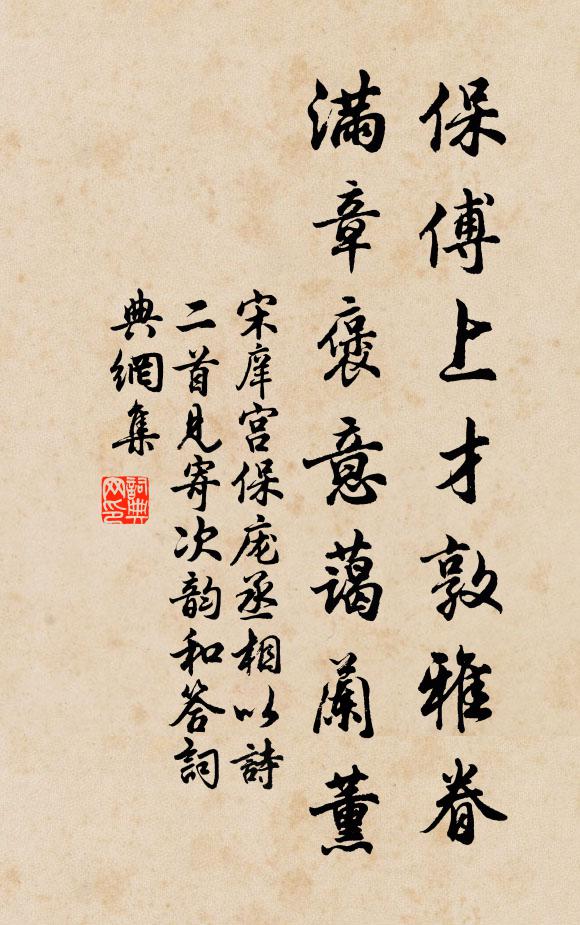 保傅上才敦雅眷
满章褒意蔼兰薰
宋庠宫保庞丞相以诗
二首见寄次韵和答词
典网集
词典网印